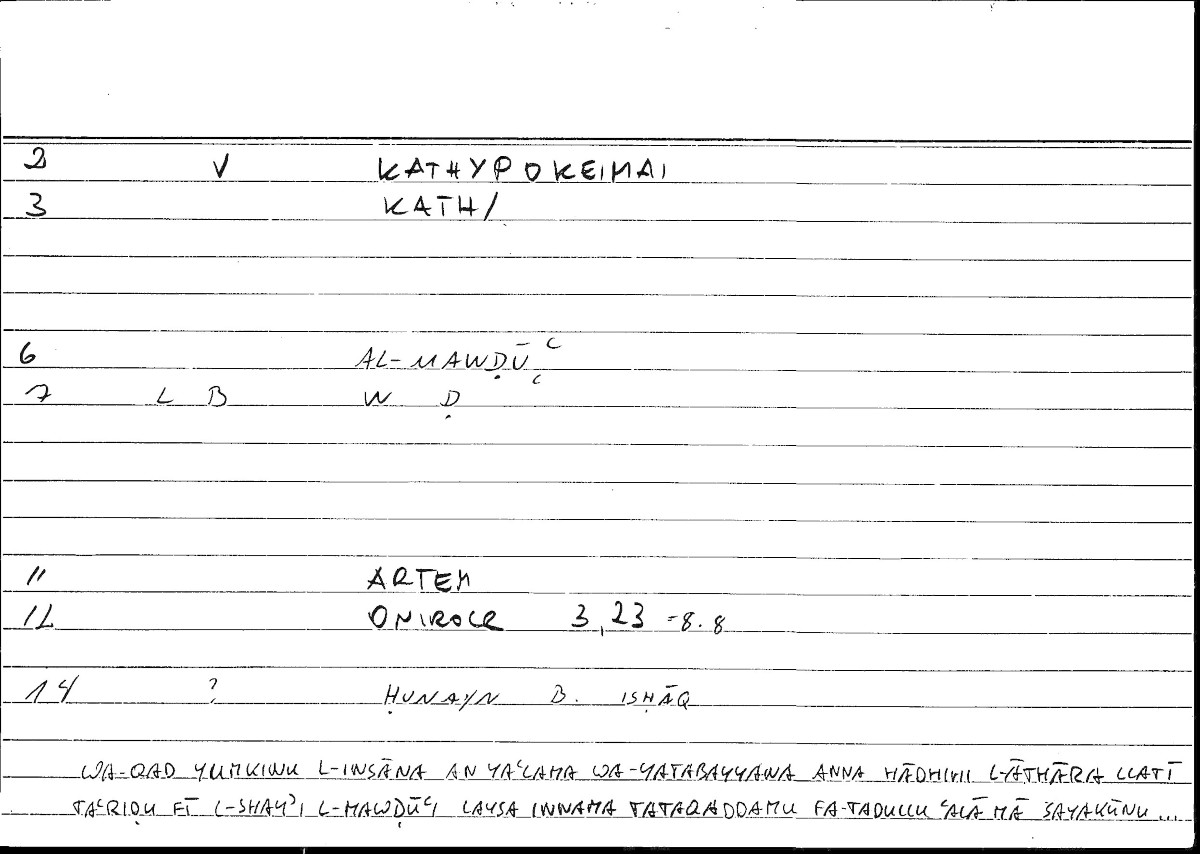 2 V KATHYPOKEIMAI
3 KATH/
6 AL-MAWḌŪʿ
7 L B W Ḍ ʿ
11 ARTEM
12 ONIROCR 3,23 -8.8
14 ? ḤUNAYN B. ISḤĀQ
WA-QAD YUMKINU L-INSĀNA AN YAʿLAMA WA-YATABAYYANA ANNA HĀDHIHI L-ĀTHĀRA LLATĪ
TAʿRIḌU FĪ L-SHAYʾI L-MAWḌŪʿI LAYSA INNAMA TATAQADDAMU FA-TADULLU ʿALĀ MĀ SAYAKŪNU...